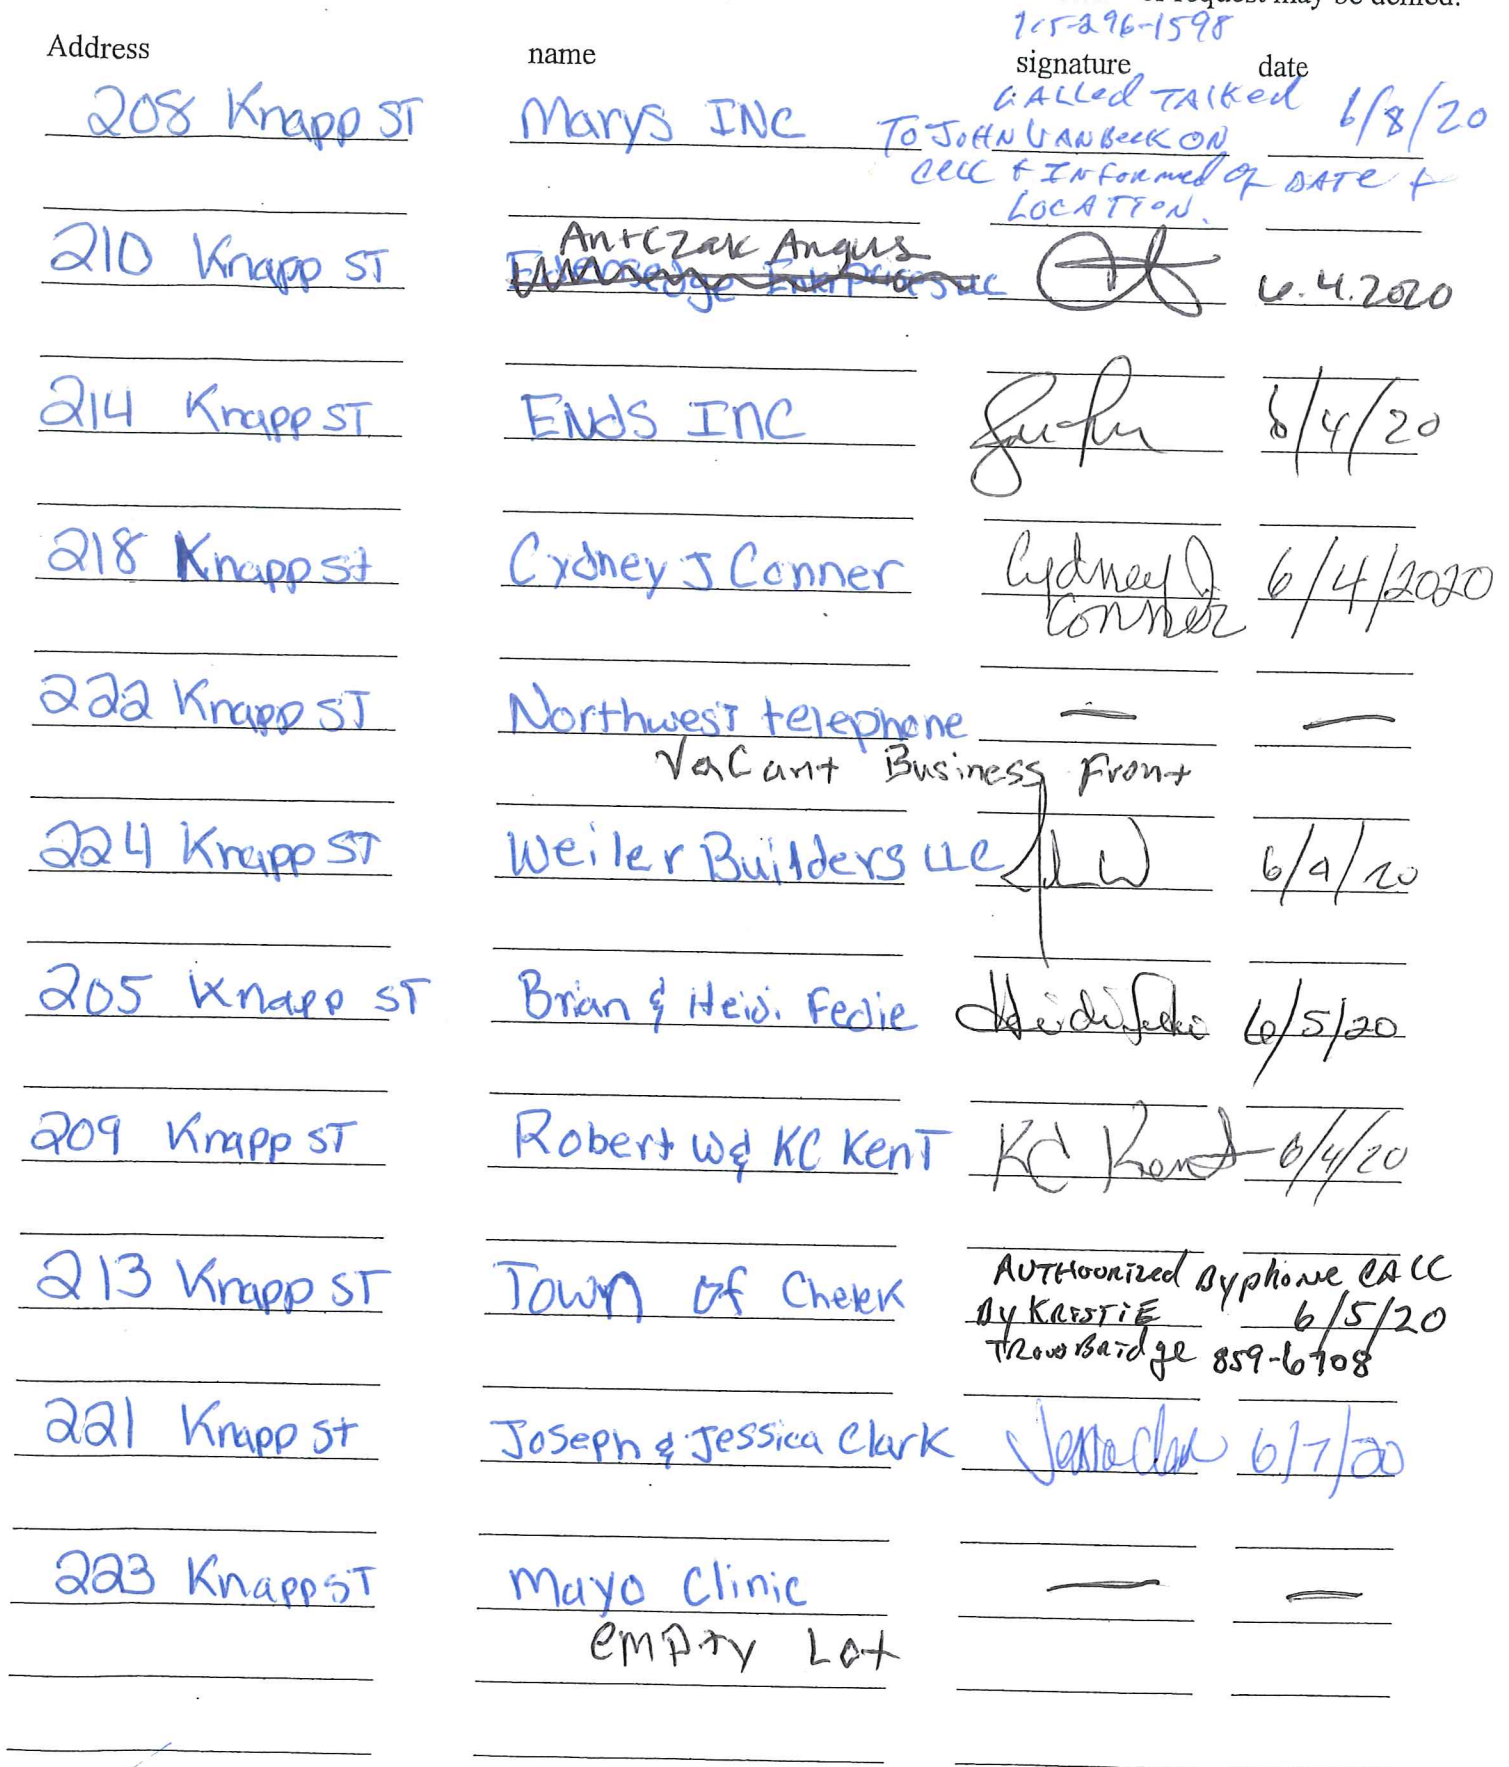 request may be denied.
715-296-1598
Address name signature date
208 Knapp ST Marys INC CALLed TALKed 6/8/20
TO JOHN VANBeek ON
CELL & INFORMED OF DATE &
LOCATION.
Antczak Angus
210 Knapp ST Enterprises LLC 6.4.2020
214 Knapp ST ENdS INC 6/4/20
218 Knapp St Cydney J Conner Cydney J 6/4/2020
Conner
222 Knapp ST Northwest telephone — —
Vacant Business Front
224 Knapp ST Weiler Builders LLC 6/9/20
205 Knapp ST Brian & Heidi Fedie Heidi Fedie 6/5/20
209 Knapp ST Robert W & KC KenT KC Kent 6/4/20
213 Knapp ST Town of Cheek AUTHoorized By phone CALL
By KRISTIE 6/5/20
TROWBRIdge 859-6708
221 Knapp St Joseph & Jessica Clark Jessica Clark 6/7/20
223 Knapp ST Mayo Clinic — —
empty Lot